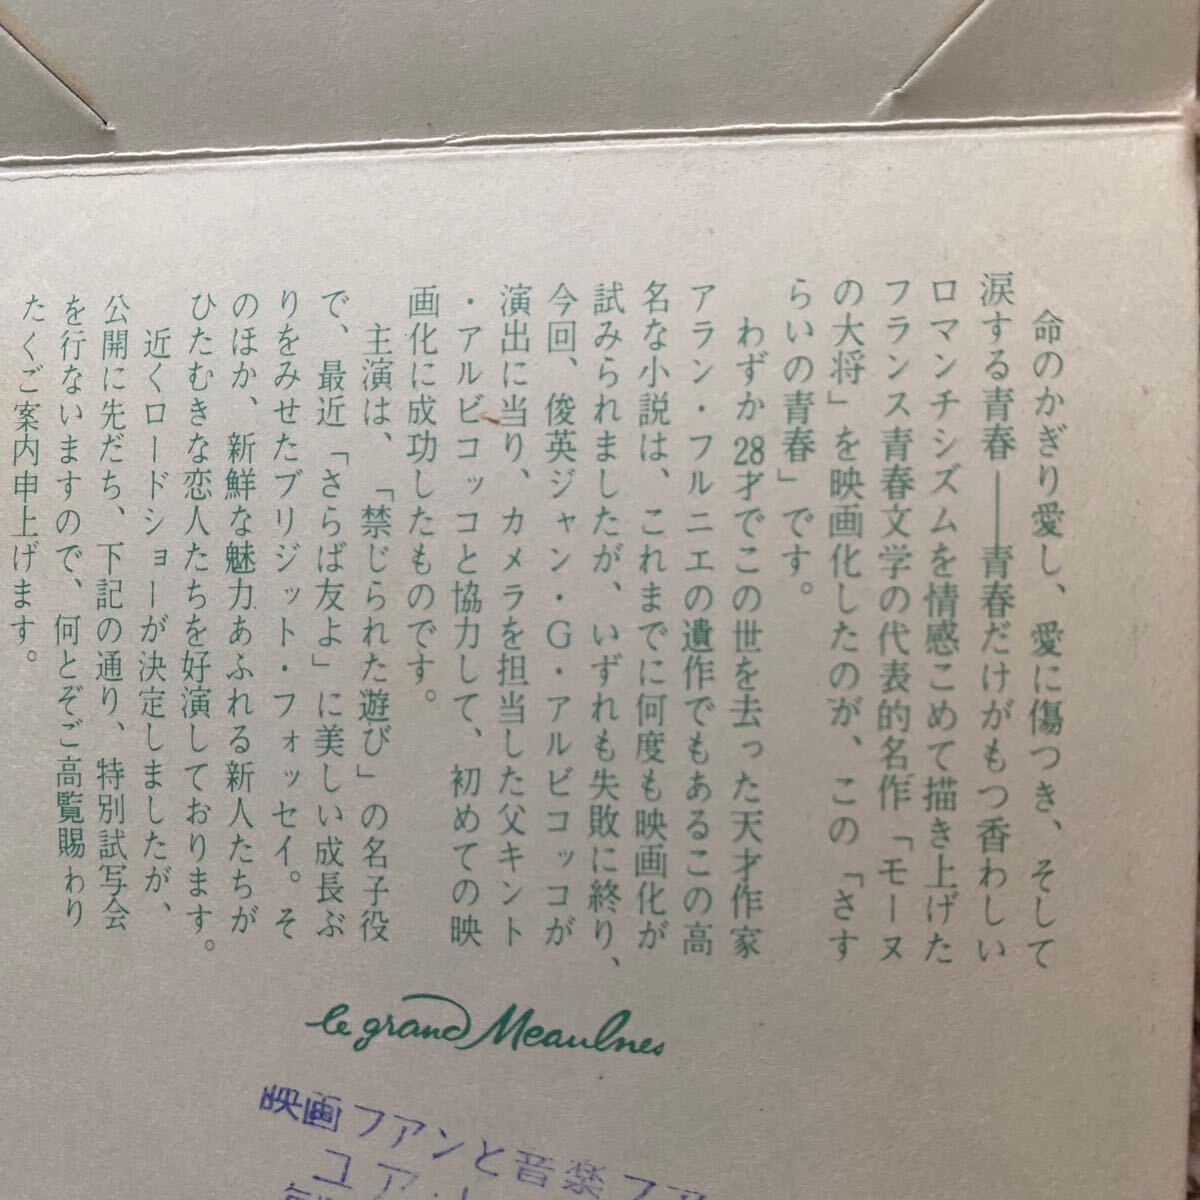 命のかぎり愛し、愛に傷つき、そして
涙する青春――青春だけがもつ香わしい
ロマンチシズムを情感こめて描き上げた
フランス青春文学の代表的名作「モーヌ
の大将」を映画化したのが、この「さす
らいの青春」です。
わずか28才でこの世を去った天才作家
アラン・フルニエの遺作でもあるこの高
名な小説は、これまでに何度も映画化が
試みられましたが、いずれも失敗に終り、
今回、俊英ジャン・G・アルビコッコが
演出に当り、カメラを担当した父キント
・アルビコッコと協力して、初めての映
画化に成功したものです。
主演は、「禁じられた遊び」の名子役
で、最近「さらば友よ」に美しい成長ぶ
りをみせたブリジット・フォッセイ。そ
のほか、新鮮な魅力あふれる新人たちが
ひたむきな恋人たちを好演しております。
近くロードショーが決定しましたが、
公開に先だち、下記の通り、特別試写会
を行ないますので、何とぞご高覧賜わり
たくご案内申上げます。
le grand Meaulnes
映画フアンと音楽フア
ユア・